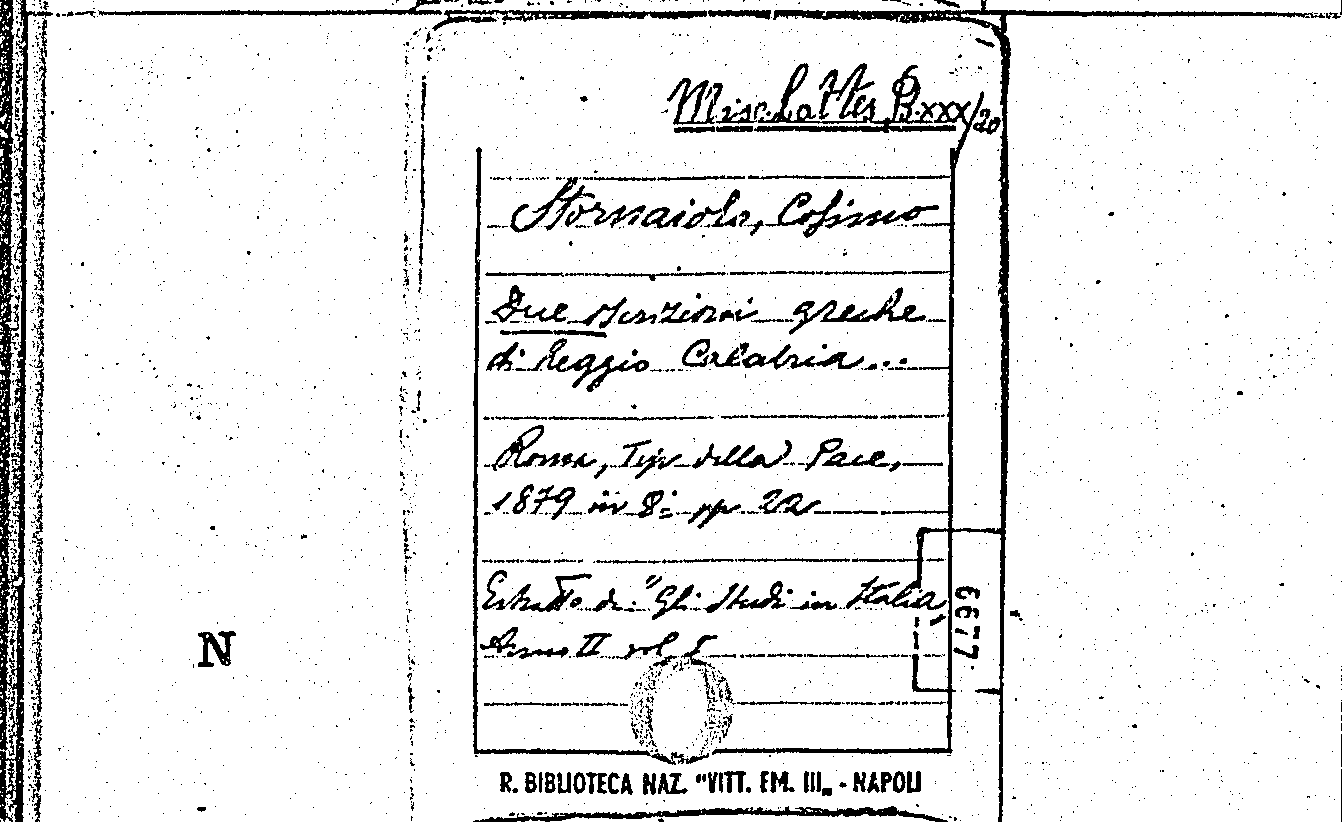 Misc. Lattes B.xxx/20
Stornaiolo, Cosimo
Due iscrizioni greche
di Reggio Calabria...
Roma, Tip. della Pace,
1879 in 8º pp. 22
Estratto da: "Gli studi in Italia,
Anno II vol I
6677
N
R. BIBLIOTECA NAZ. "VITT. EM. III„ - NAPOLI